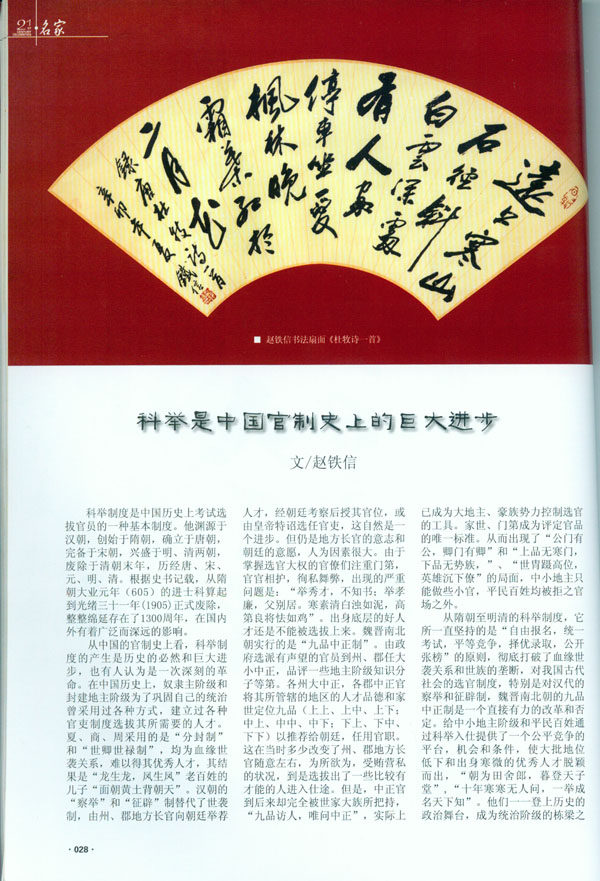 21
名家
遠上寒山
石徑斜
白雲深處
有人家
停車坐愛
楓林晚
霜葉紅於
二月花
錄唐杜牧詩一首
辛卯年夏 鐵信
■ 赵铁信书法扇面《杜牧诗一首》
科举是中国官制史上的巨大进步
文/赵铁信
科举制度是中国历史上考试选
拔官员的一种基本制度。他渊源于
汉朝，创始于隋朝，确立于唐朝，
完备于宋朝，兴盛于明、清两朝，
废除于清朝末年，历经唐、宋、
元、明、清。根据史书记载，从隋
朝大业元年（605）的进士科算起
到光绪三十一年(1905)正式废除，
整整绵延存在了1300周年，在国内
外有着广泛而深远的影响。
从中国的官制史上看，科举制
度的产生是历史的必然和巨大进
步，也有人认为是一次深刻的革
命。在中国历史上，奴隶主阶级和
封建地主阶级为了巩固自己的统治
曾采用过各种方式，建立过各种
官吏制度选拔其所需要的人才。
夏、商、周采用的是“分封制”
和“世卿世禄制”，均为血缘世
袭关系，难以得其优秀人才，其结
果是“龙生龙，凤生凤”老百姓的
儿子“面朝黄土背朝天”。汉朝的
“察举”和“征辟”制替代了世袭
制，由州、郡地方长官向朝廷举荐
人才，经朝廷考察后授其官位，或
由皇帝特诏选任官吏，这自然是一
个进步。但仍是地方长官的意志和
朝廷的意愿，人为因素很大。由于
掌握选官大权的官僚们注重门第，
官官相护，徇私舞弊，出现的严重
问题是：“举秀才，不知书；举孝
廉，父别居。寒素清白浊如泥，高
第良将怯如鸡”。出身底层的好人
才还是不能被选拔上来。魏晋南北
朝实行的是“九品中正制”。由政
府选派有声望的官员到州、郡任大
小中正，品评一些地主阶级知识分
子等第。各州大中正，各郡中正官
将其所管辖的地区的人才品德和家
世定位九品（上上、上中、上下；
中上、中中、中下；下上、下中、
下下）以推荐给朝廷，任用官职。
这在当时多少改变了州、郡地方长
官随意左右，为所欲为，受贿营私
的状况，到是选拔出了一些比较有
才能的人进入仕途。但是，中正官
到后来却完全被世家大族所把持，
“九品访人，唯问中正”，实际上
已成为大地主、豪族势力控制选官
的工具。家世、门第成为评定官品
的唯一标准。从而出现了“公门有
公，卿门有卿”和“上品无寒门，
下品无势族，”、“世胄蹑高位，
英雄沉下僚”的局面，中小地主只
能做些小官，平民百姓均被拒之官
场之外。
从隋朝至明清的科举制度，它
所一直坚持的是“自由报名，统一
考试，平等竞争，择优录取，公开
张榜”的原则，彻底打破了血缘世
袭关系和世族的垄断，对我国古代
社会的选官制度，特别是对汉代的
察举和征辟制，魏晋南北朝的九品
中正制是一个直接有力的改革和否
定。给中小地主阶级和平民百姓通
过科举入仕提供了一个公平竞争的
平台，机会和条件，使大批地位
低下和出身寒微的优秀人才脱颖
而出，“朝为田舍郎，暮登天子
堂”，“十年寒寒无人问，一举成
名天下知”。他们一一登上历史的
政治舞台，成为统治阶级的栋梁之
·028·